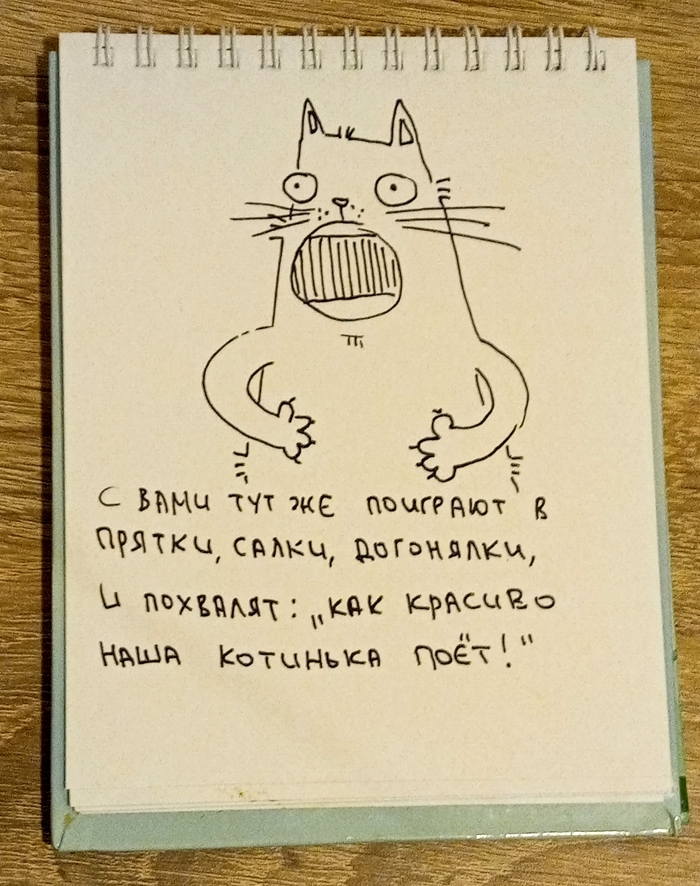 С ВАМИ ТУТ ЖЕ ПОИГРАЮТ В
ПРЯТКИ, САЛКИ, ДОГОНЯЛКИ,
И ПОХВАЛЯТ: „КАК КРАСИВО
НАША КОТИНЬКА ПОЁТ!"